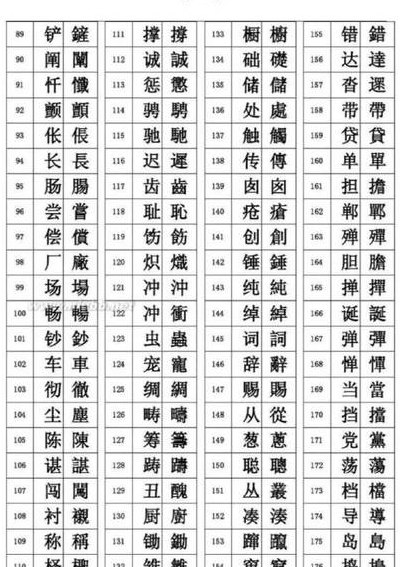 89 铲 鏟 111 撑 撐 133 橱 櫥 155 错 錯
90 阐 闡 112 诚 誠 134 础 礎 156 达 達
91 忏 懺 113 惩 懲 135 储 儲 157 沓 遝
92 颤 顫 114 骋 騁 136 处 處 158 带 帶
93 伥 倀 115 驰 馳 137 触 觸 159 贷 貸
94 长 長 116 迟 遲 138 传 傳 160 单 單
95 肠 腸 117 齿 齒 139 囱 囪 161 担 擔
96 尝 嘗 118 耻 恥 140 疮 瘡 162 郸 鄲
97 偿 償 119 饬 飭 141 创 創 163 殚 殫
98 厂 廠 120 炽 熾 142 锤 錘 164 胆 膽
99 场 場 121 冲 沖 143 纯 純 165 掸 撣
100 畅 暢 122 冲 衝 144 绰 綽 166 诞 誕
101 钞 鈔 123 虫 蟲 145 词 詞 167 弹 彈
102 车 車 124 宠 寵 146 辞 辭 168 惮 憚
103 彻 徹 125 绸 綢 147 赐 賜 169 当 當
104 尘 塵 126 畴 疇 148 从 從 170 挡 擋
105 陈 陳 127 筹 籌 149 葱 蔥 171 党 黨
106 谌 諶 128 踌 躊 150 聪 聰 172 荡 蕩
107 闯 闖 129 丑 醜 151 丛 叢 173 档 檔
108 衬 襯 130 厨 廚 152 凑 湊 174 导 導
109 称 稱 131 锄 鋤 153 蹿 躥 175 岛 島